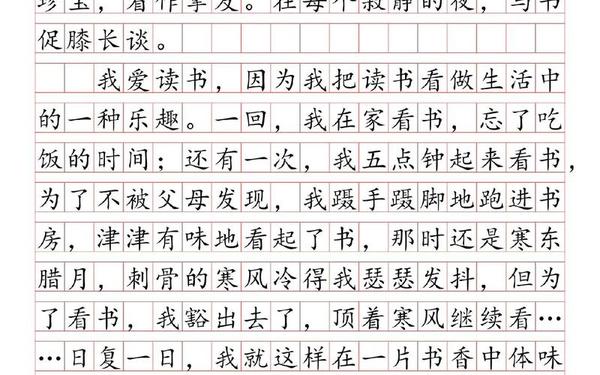 珍宝，看作挚友。在每个寂静的夜，与书
促膝长谈。
我爱读书，因为我把读书看做生活中
的一种乐趣。一回，我在家看书，忘了吃
饭的时间；还有一次，我五点钟起来看书，
为了不被父母发现，我蹑手蹑脚地跑进书
房，津津有味地看起了书，那时还是寒东
腊月，刺骨的寒风冷得我瑟瑟发抖，但为
了看书，我豁出去了，顶着寒风继续看…
…日复一日，我就这样在一片书香中体味